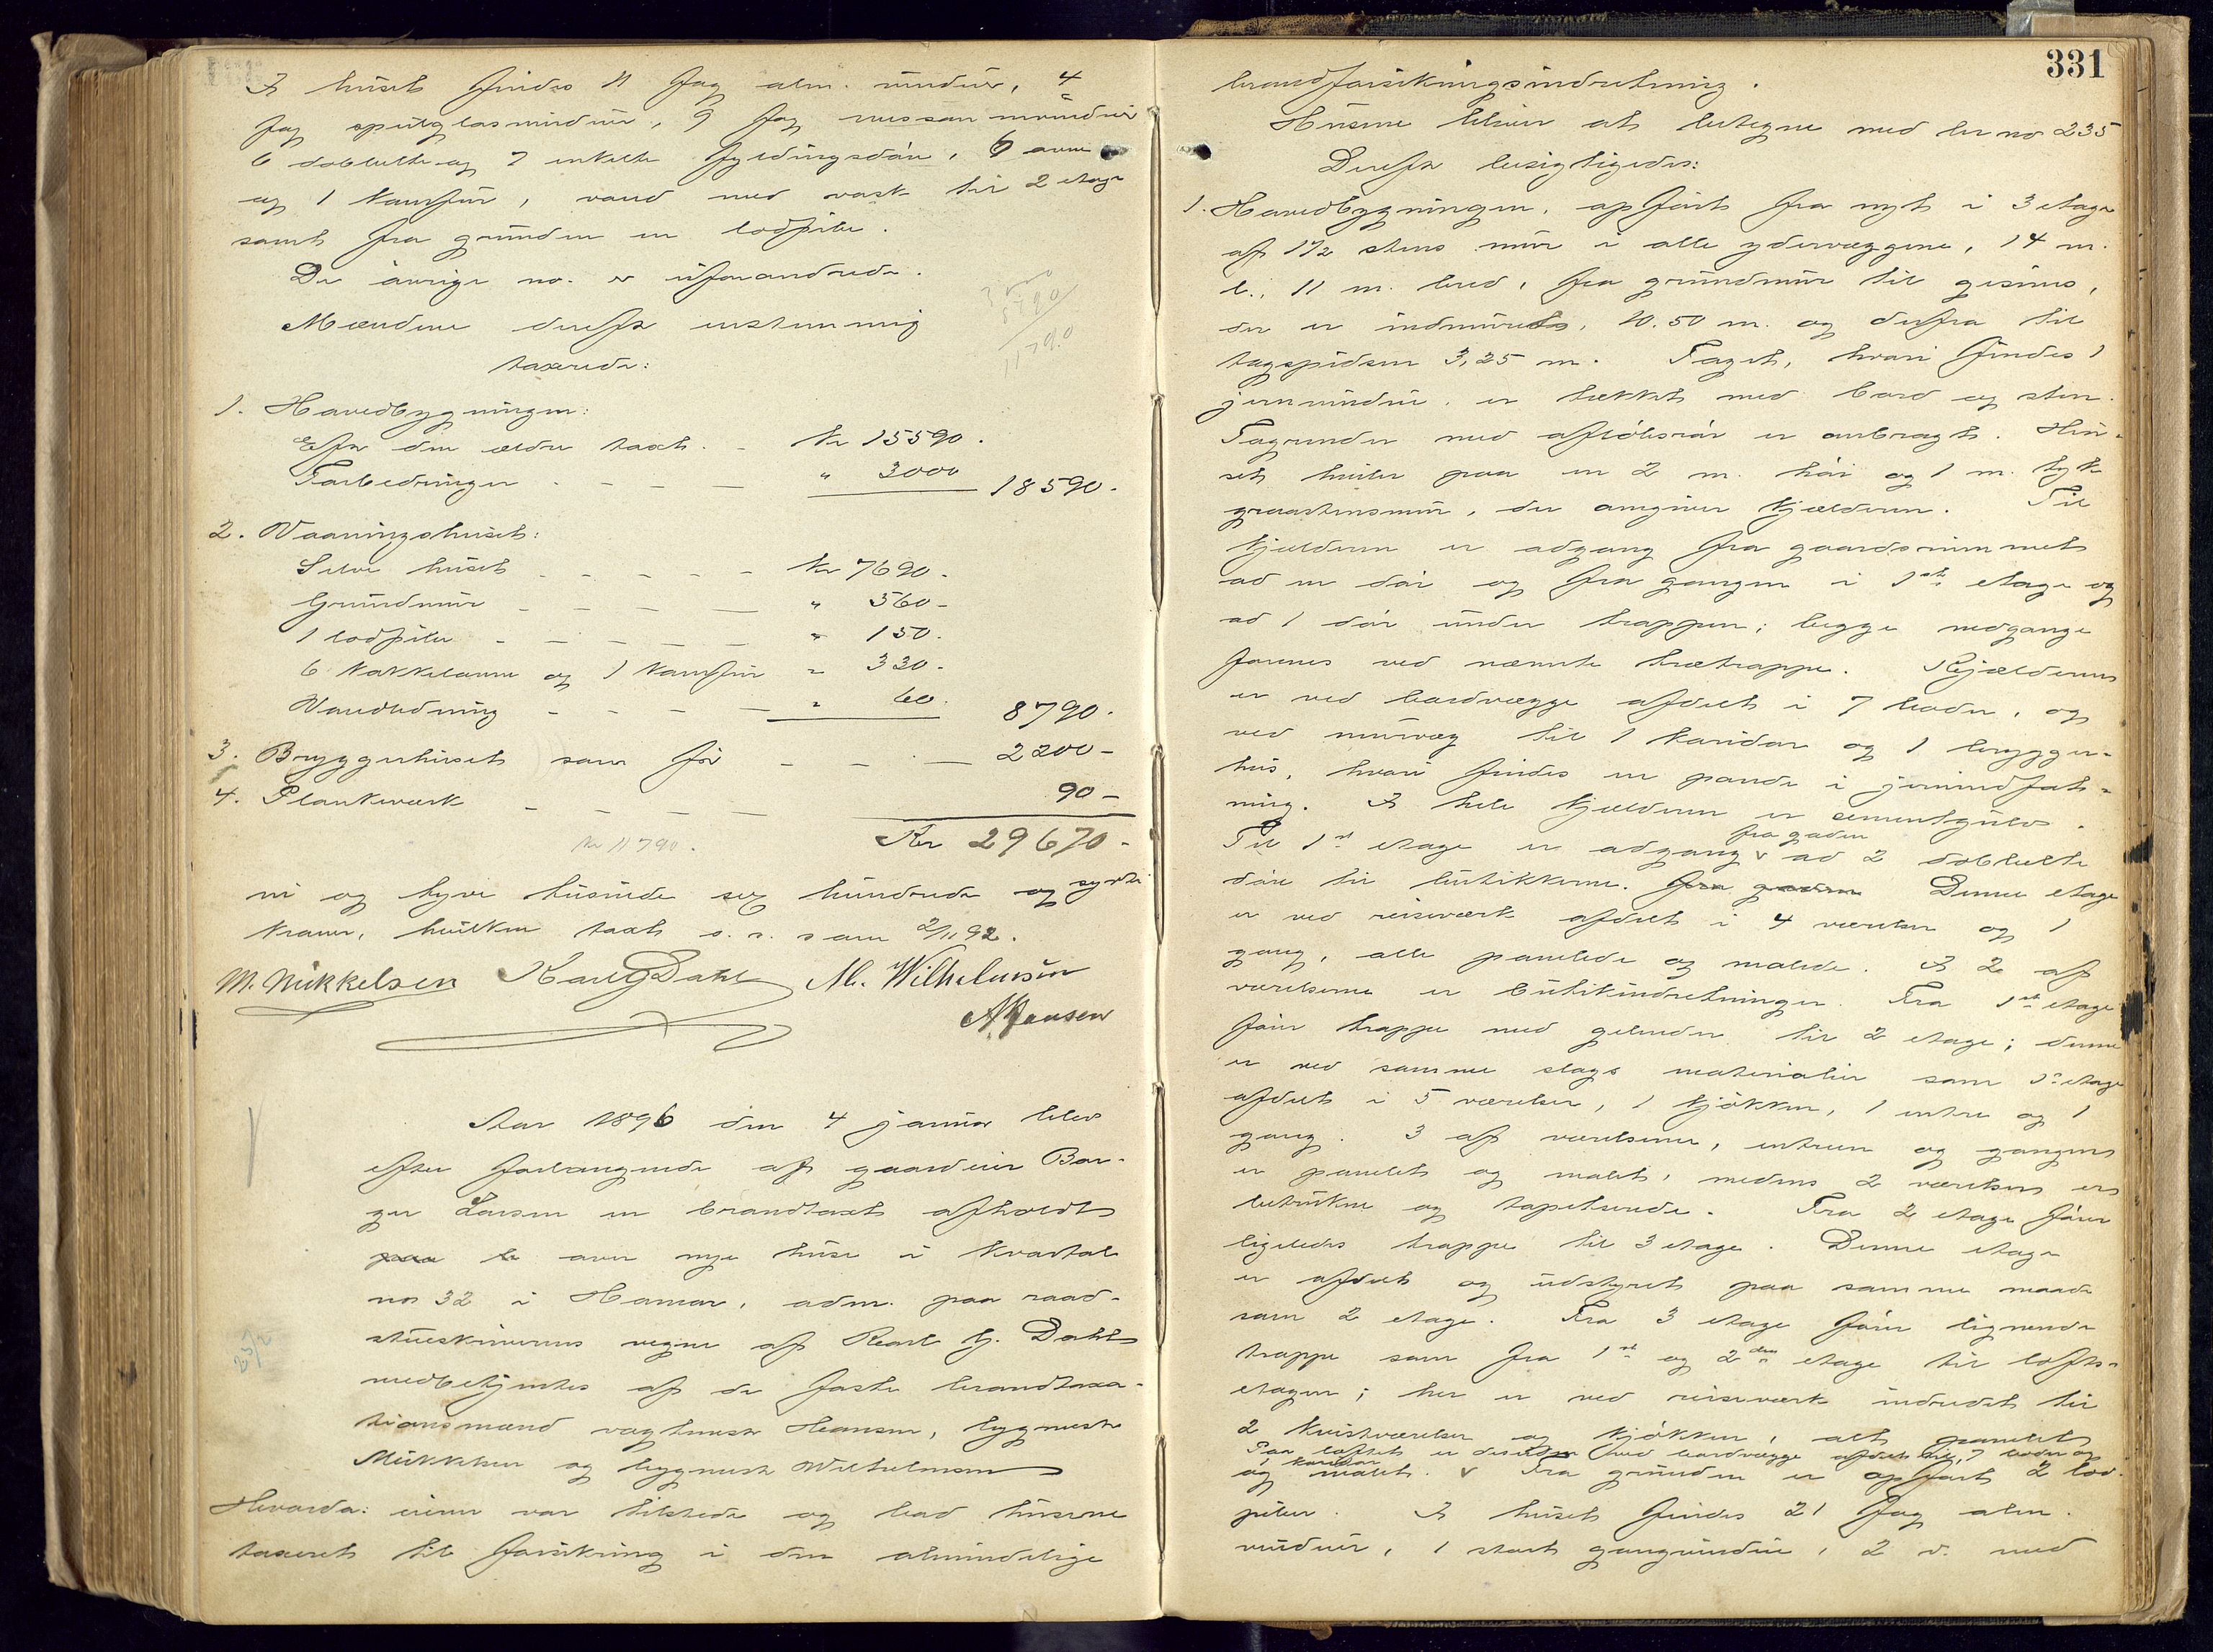 I huset findes 11 fag alm. vinduer, 4
fag speilglasvinduer, 9 fag vinduer
6 dobbelte og 7 enkelte fyldingsdøre, 6 ovne
og 1 komfur, vand med vask til 2 etage
samt fra grunden en lodpibe.
De øvrige no. er uforandrede.
Mændene derefter enstemmig
taxerede:
3000
8790
11790
1. Hovedbygningen:
Efter den ældre taxt. - Kr 15590.
Forbedringer - - - - " 3000 18590.
2. Vaaningshuset:
Selve huset - - - - - Kr 7690.
Grundmur - - - - " 560-
1 lodpibe - - - - - " 150.
6 kakkelovne og 1 komfur " 330.
Vandledning - - - - " 60. 8790.
3. Bryggerhuset som før - - - 2200-
4. Plankeværk - - - - 90-
Kr 11790. Kr 29670-
ni og tyve tusinde sex hundrede og sytti
kroner, hvilken taxt o. s. som 2/11 92.
M. Mikkelsen Karl G Dahl M. Wilhelmsen
A Hansen
Aar 1896 den 4 januar blev
efter forlangende af gaardeier Bor-
ger Larsen en brandtaxt afholdt
paa b over nye huse i kvartal
no 32 i Hamar, adm. paa raad-
stueskriverens vegne af Karl G. Dahl
medbetjentes af de faste brandtaxa-
23/2
tionsmænd vagtmester Hansen, bygmester
Mikkelsen og bygmester Wilhelmsen
Hvorda: eieren var tilstede og bad husene
taxeret til forsikring i den almindelige
331
brandforsikringsindretning.
Husene bliver at betegne med br no 235
Derefter besigtigedes:
1. Hovedbygningen, opført fra nyt i 3 etager
af 1 1/2 stens mur i alle ydervæggene, 14 m.
l., 11 m. bred, fra grundmur til gesims,
der er indmuret, 10.50 m. og derfra til
tagspidsen 3,25 m. Taget, hvori findes 1
jernvindue, er tækket med bord og sten.
Tagrender med afløbsrør er anbragt. Hu-
set hviler paa en 2 m. høi og 1 m. tyk
graastensmur, der omgiver kjælderen. Til
kjælderen er adgang fra gaardsrummet
ad en dør og fra gangen i 1ste etage og
ad 1 dør under trappen; begge nedgange
forenes ved nævnte trætrappe. Kjælderen
er ved bordvægge afdelt i 7 boder, og
ved murvæg til 1 koridor og 1 brygger-
hus, hvori findes en pande i jernindfat-
ning. I hele kjælderen er sementgulv.
fra gaden
Til 1st etage er adgang v ad 2 dobbelte
døre til butikkerne. fra gaden Denne etage
er ved reisværk afdelt i 4 værelser og 1
gang, alle panelede og malede. I 2 af
værelserne er butikindretninger. Fra 1st etage
fører trappe med gelænder til 2 etage; denne
er ved samme slags materialier som 1st etage
afdelt i 5 værelser, 1 kjøkken, 1 entre og 1
gang. 3 af værelserne, entreen og gangen
er panelet og malet, medens 2 værelser er
betrukne og tapetserede. Fra 2 etage fører
ligeledes trappe til 3 etage. Denne etage
er afdelt og udstyret paa samme maade
som 2 etage. Fra 3 etage fører lignende
trappe som fra 1st og 2den etage til lofts-
etagen; her er ved reisværk indredet til
2 kvistværelser og kjøkken, alt panelet
Paa loftet er desuden ved bordvægge afdelt til 7 boder og
1 koridor
og malet. v Fra grunden er opført 2 lod-
piber. I huset findes 21 fag alm.
vinduer, 1 stort gangvindue, 2 v. med